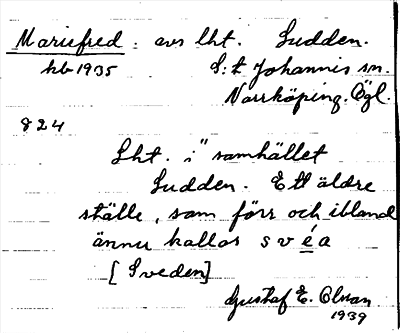 Mariefred : avs lht. Sudden.
kb 1935 S:t Johannis sn.
Norrköping. Ögl.
824
Lht. i "samhället
Sudden. Ett äldre
ställe, som förr och ibland
ännu kallas svéa
[Sveden]
Gustaf E. Olsson
1939